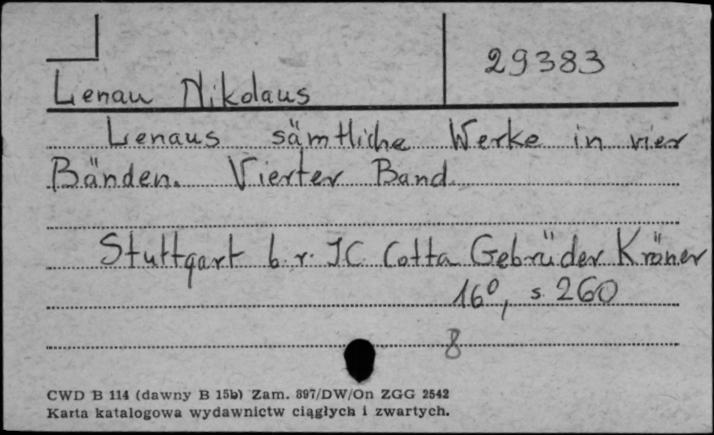 29383
Lenau Nikolaus
Lenaus sämtliche Werke in vier
Bänden. Vierter Band.
Stuttgart b.r. JC Cotta Gebrüder Kröner
16°, s. 260
8
CWD B 114 (dawny B 15b) Zam. 897/DW/On ZGG 2542
Karta katalogowa wydawnictw ciągłych i zwartych.